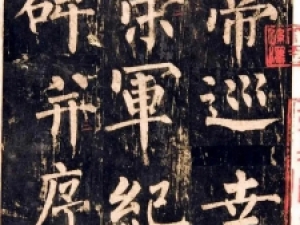 帝巡幸
禁軍紀
碑并序